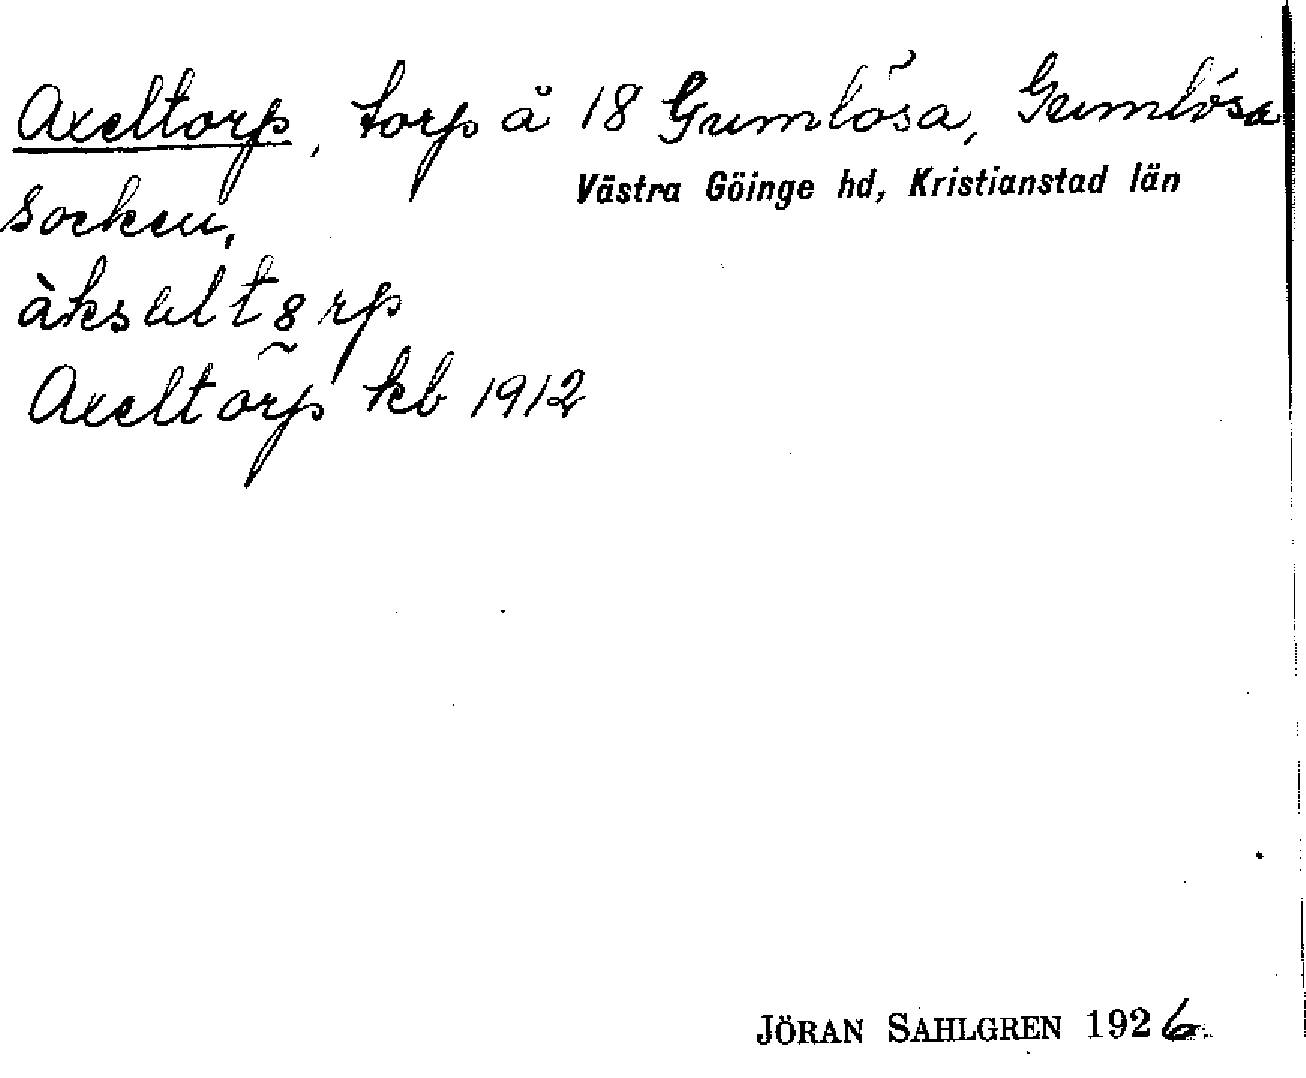 Axeltorp, torp å 18 Gumlösa, Gumlösa
Västra Göinge hd, Kristianstad län
socken.
Axeltorp kb 1912
JÖRAN SAHLGREN 1926